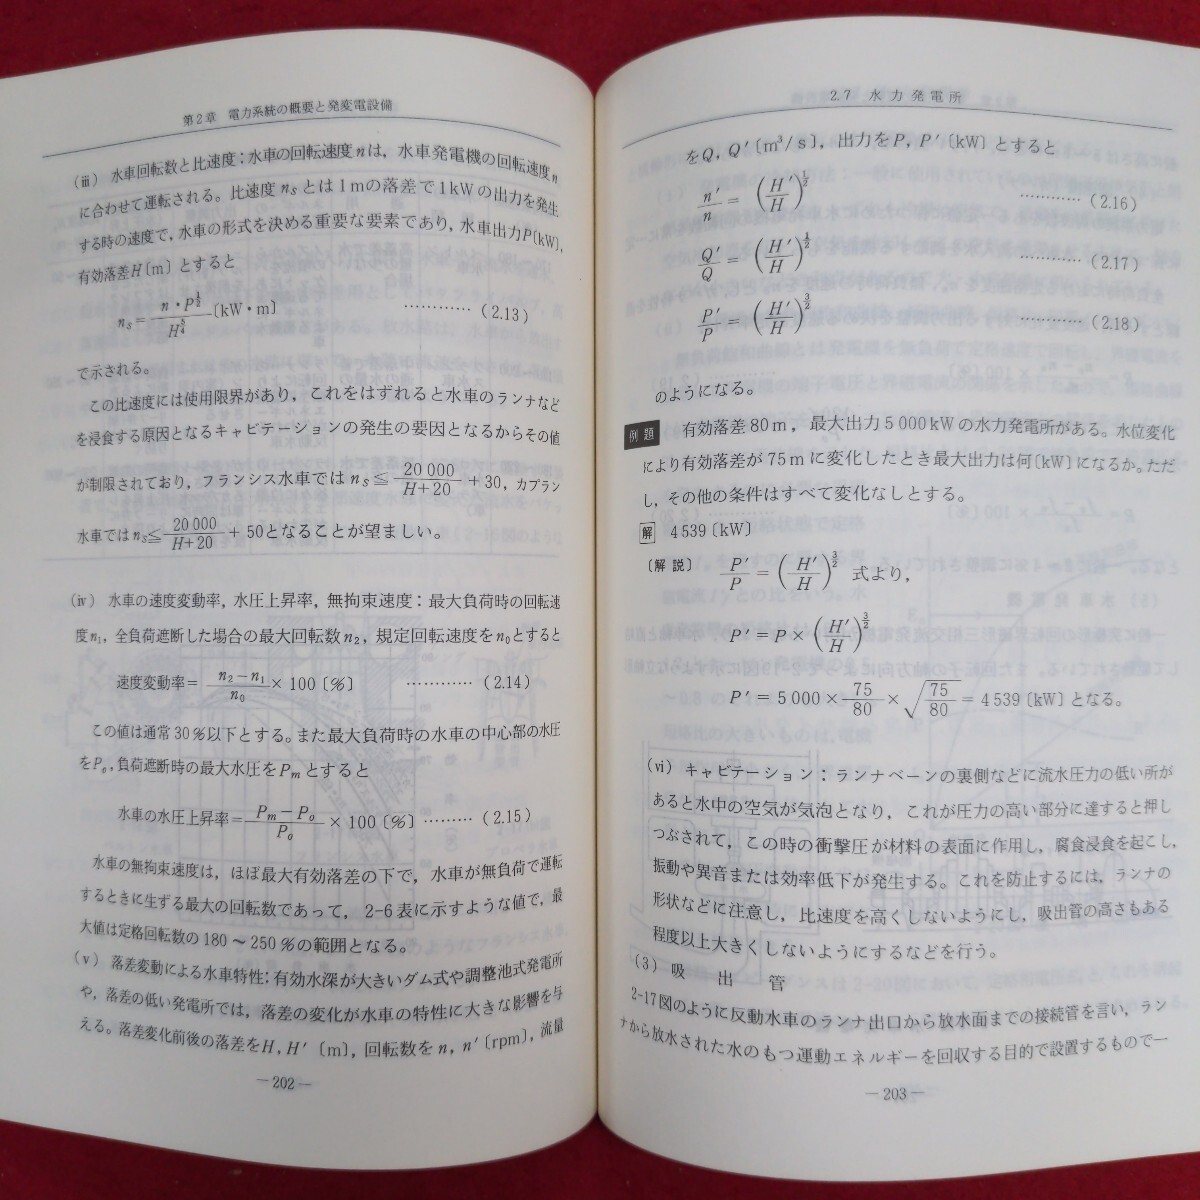 第2章 電力系統の概要と発変電設備
(ⅲ) 水車回転数と比速度：水車の回転速度nは，水車発電機の回転速度n
に合わせて運転される。比速度nsとは1mの落差で1kWの出力を発生
する時の速度で，水車の形式を決める重要な要素であり，水車出力P〔kW〕，
有効落差H〔m〕とすると
ns = n・P^(1/2) / H^(3/4) 〔kW・m〕 ………… (2.13)
で示される。
この比速度には使用限界があり，これをはずれると水車のランナなど
を浸食する原因となるキャビテーションの発生の要因となるからその値
が制限されており，フランシス水車ではns≦ 20 000 / H+20 +30，カプラン
水車ではns≦ 20 000 / H+20 + 50となることが望ましい。
(ⅳ) 水車の速度変動率，水圧上昇率，無拘束速度：最大負荷時の回転速
度n1，全負荷遮断した場合の最大回転数n2，規定回転速度をn0とすると
速度変動率= n2−n1 / n0 ×100〔%〕 ………… (2.14)
この値は通常30％以下とする。また最大負荷時の水車の中心部の水圧
をPo，負荷遮断時の最大水圧をPmとすると
水車の水圧上昇率= Pm−Po / Po ×100〔%〕……… (2.15)
水車の無拘束速度は，ほぼ最大有効落差の下で，水車が無負荷で運転
するときに生ずる最大の回転数であって，2-6表に示すような値で，最
大値は定格回転数の180～250％の範囲となる。
(ⅴ) 落差変動による水車特性：有効水深が大きいダム式や調整池式発電所
や，落差の低い発電所では，落差の変化が水車の特性に大きな影響を与
える。落差変化前後の落差をH, H′〔m〕，回転数をn, n′〔rpm〕，流量
―202―
2.7 水力発電所
をQ, Q′〔m³/s〕，出力をP, P′〔kW〕とすると
n′/n = (H′/H)^(1/2) ………… (2.16)
Q′/Q = (H′/H)^(1/2) ………… (2.17)
P′/P = (H′/H)^(3/2) ………… (2.18)
のようになる。
例題 有効落差80m，最大出力5 000kWの水力発電所がある。水位変化
により有効落差が75mに変化したとき最大出力は何〔kW〕になるか。ただ
し，その他の条件はすべて変化なしとする。
解 4 539〔kW〕
〔解説〕 P′/P = (H′/H)^(3/2) 式より，
P′=P×(H′/H)^(3/2)
P′=5 000× 75/80 ×√(75/80) =4 539〔kW〕となる。
(ⅵ) キャビテーション：ランナベーンの裏側などに流水圧力の低い所が
あると水中の空気が気泡となり，これが圧力の高い部分に達すると押し
つぶされて，この時の衝撃圧が材料の表面に作用し，腐食浸食を起こし，
振動や異音または効率低下が発生する。これを防止するには，ランナの
形状などに注意し，比速度を高くしないようにし，吸出管の高さもある
程度以上大きくしないようにするなどを行う。
(3) 吸出管
2-17図のように反動水車のランナ出口から放水面までの接続管を言い，ラン
ナから放水された水のもつ運動エネルギーを回収する目的で設置するもので一
―203―